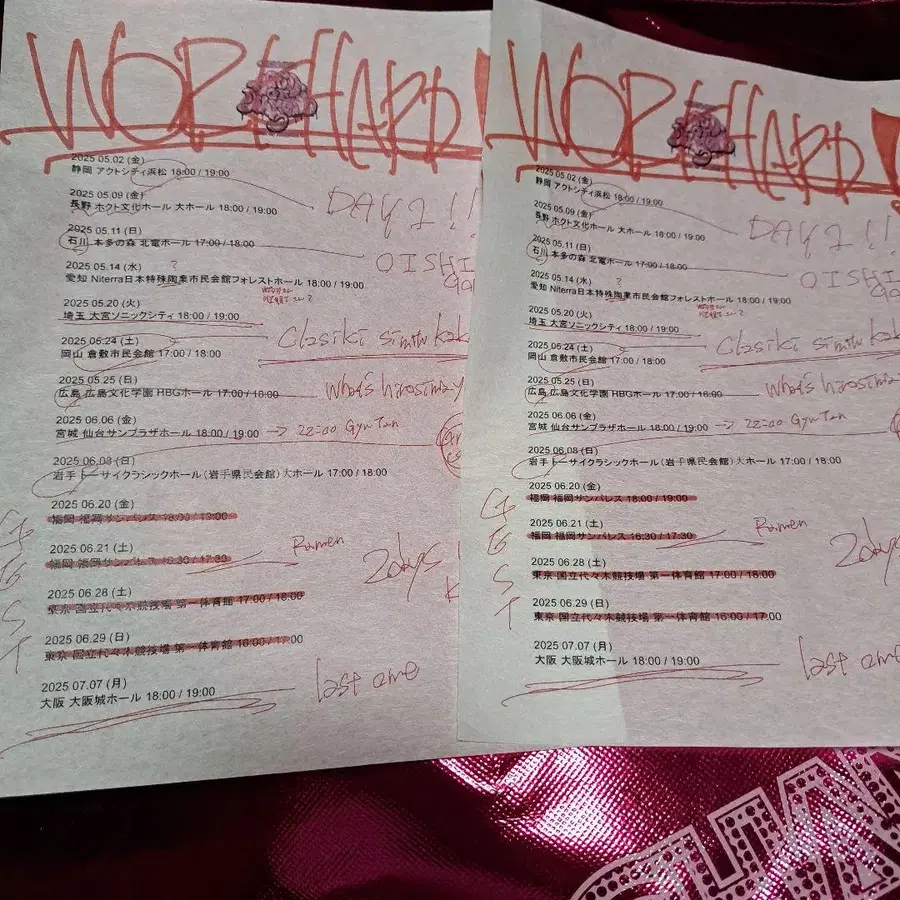 WORK HARD
2025 05.02 (金)
静岡 アクトシティ浜松 18:00 / 19:00
DAY 1!!
2025 05.09 (金)
長野 ホクト文化ホール 大ホール 18:00 / 19:00
2025 05.11 (日)
石川 本多の森 北電ホール 17:00 / 18:00
OISHI
2025 05.14 (水)
?
愛知 Niterra日本特殊陶業市民会館フォレストホール 18:00 / 19:00
2025 05.20 (火)
埼玉 大宮ソニックシティ 18:00 / 19:00
2025 06.24 (土)
岡山 倉敷市民会館 17:00 / 18:00
2025 05.25 (日)
広島 広島文化学園 HBGホール 17:00 / 18:00
2025 06.06 (金)
宮城 仙台サンプラザホール 18:00 / 19:00
22:00 Gyu Tan
2025 06.08 (日)
岩手 トーサイクラシックホール（岩手県民会館）大ホール 17:00 / 18:00
2025 06.20 (金)
福岡 福岡サンパレス 18:00 / 19:00
2025 06.21 (土)
福岡 福岡サンパレス 16:30 / 17:30
Ramen
2days
2025 06.28 (土)
東京 国立代々木競技場 第一体育館 17:00 / 18:00
2025 06.29 (日)
東京 国立代々木競技場 第一体育館 16:00 / 17:00
2025 07.07 (月)
大阪 大阪城ホール 18:00 / 19:00
last one
WORK HARD
2025 05.02 (金)
静岡 アクトシティ浜松 18:00 / 19:00
DAY 1!!
2025 05.09 (金)
長野 ホクト文化ホール 大ホール 18:00 / 19:00
2025 05.11 (日)
石川 本多の森 北電ホール 17:00 / 18:00
OISHI
2025 05.14 (水)
?
愛知 Niterra日本特殊陶業市民会館フォレストホール 18:00 / 19:00
2025 05.20 (火)
埼玉 大宮ソニックシティ 18:00 / 19:00
2025 06.24 (土)
岡山 倉敷市民会館 17:00 / 18:00
2025 05.25 (日)
広島 広島文化学園 HBGホール 17:00 / 18:00
2025 06.06 (金)
宮城 仙台サンプラザホール 18:00 / 19:00
22:00 Gyu Tan
2025 06.08 (日)
岩手 トーサイクラシックホール（岩手県民会館）大ホール 17:00 / 18:00
2025 06.20 (金)
福岡 福岡サンパレス 18:00 / 19:00
2025 06.21 (土)
福岡 福岡サンパレス 16:30 / 17:30
Ramen
2days
2025 06.28 (土)
東京 国立代々木競技場 第一体育館 17:00 / 18:00
2025 06.29 (日)
東京 国立代々木競技場 第一体育館 16:00 / 17:00
2025 07.07 (月)
大阪 大阪城ホール 18:00 / 19:00
last one